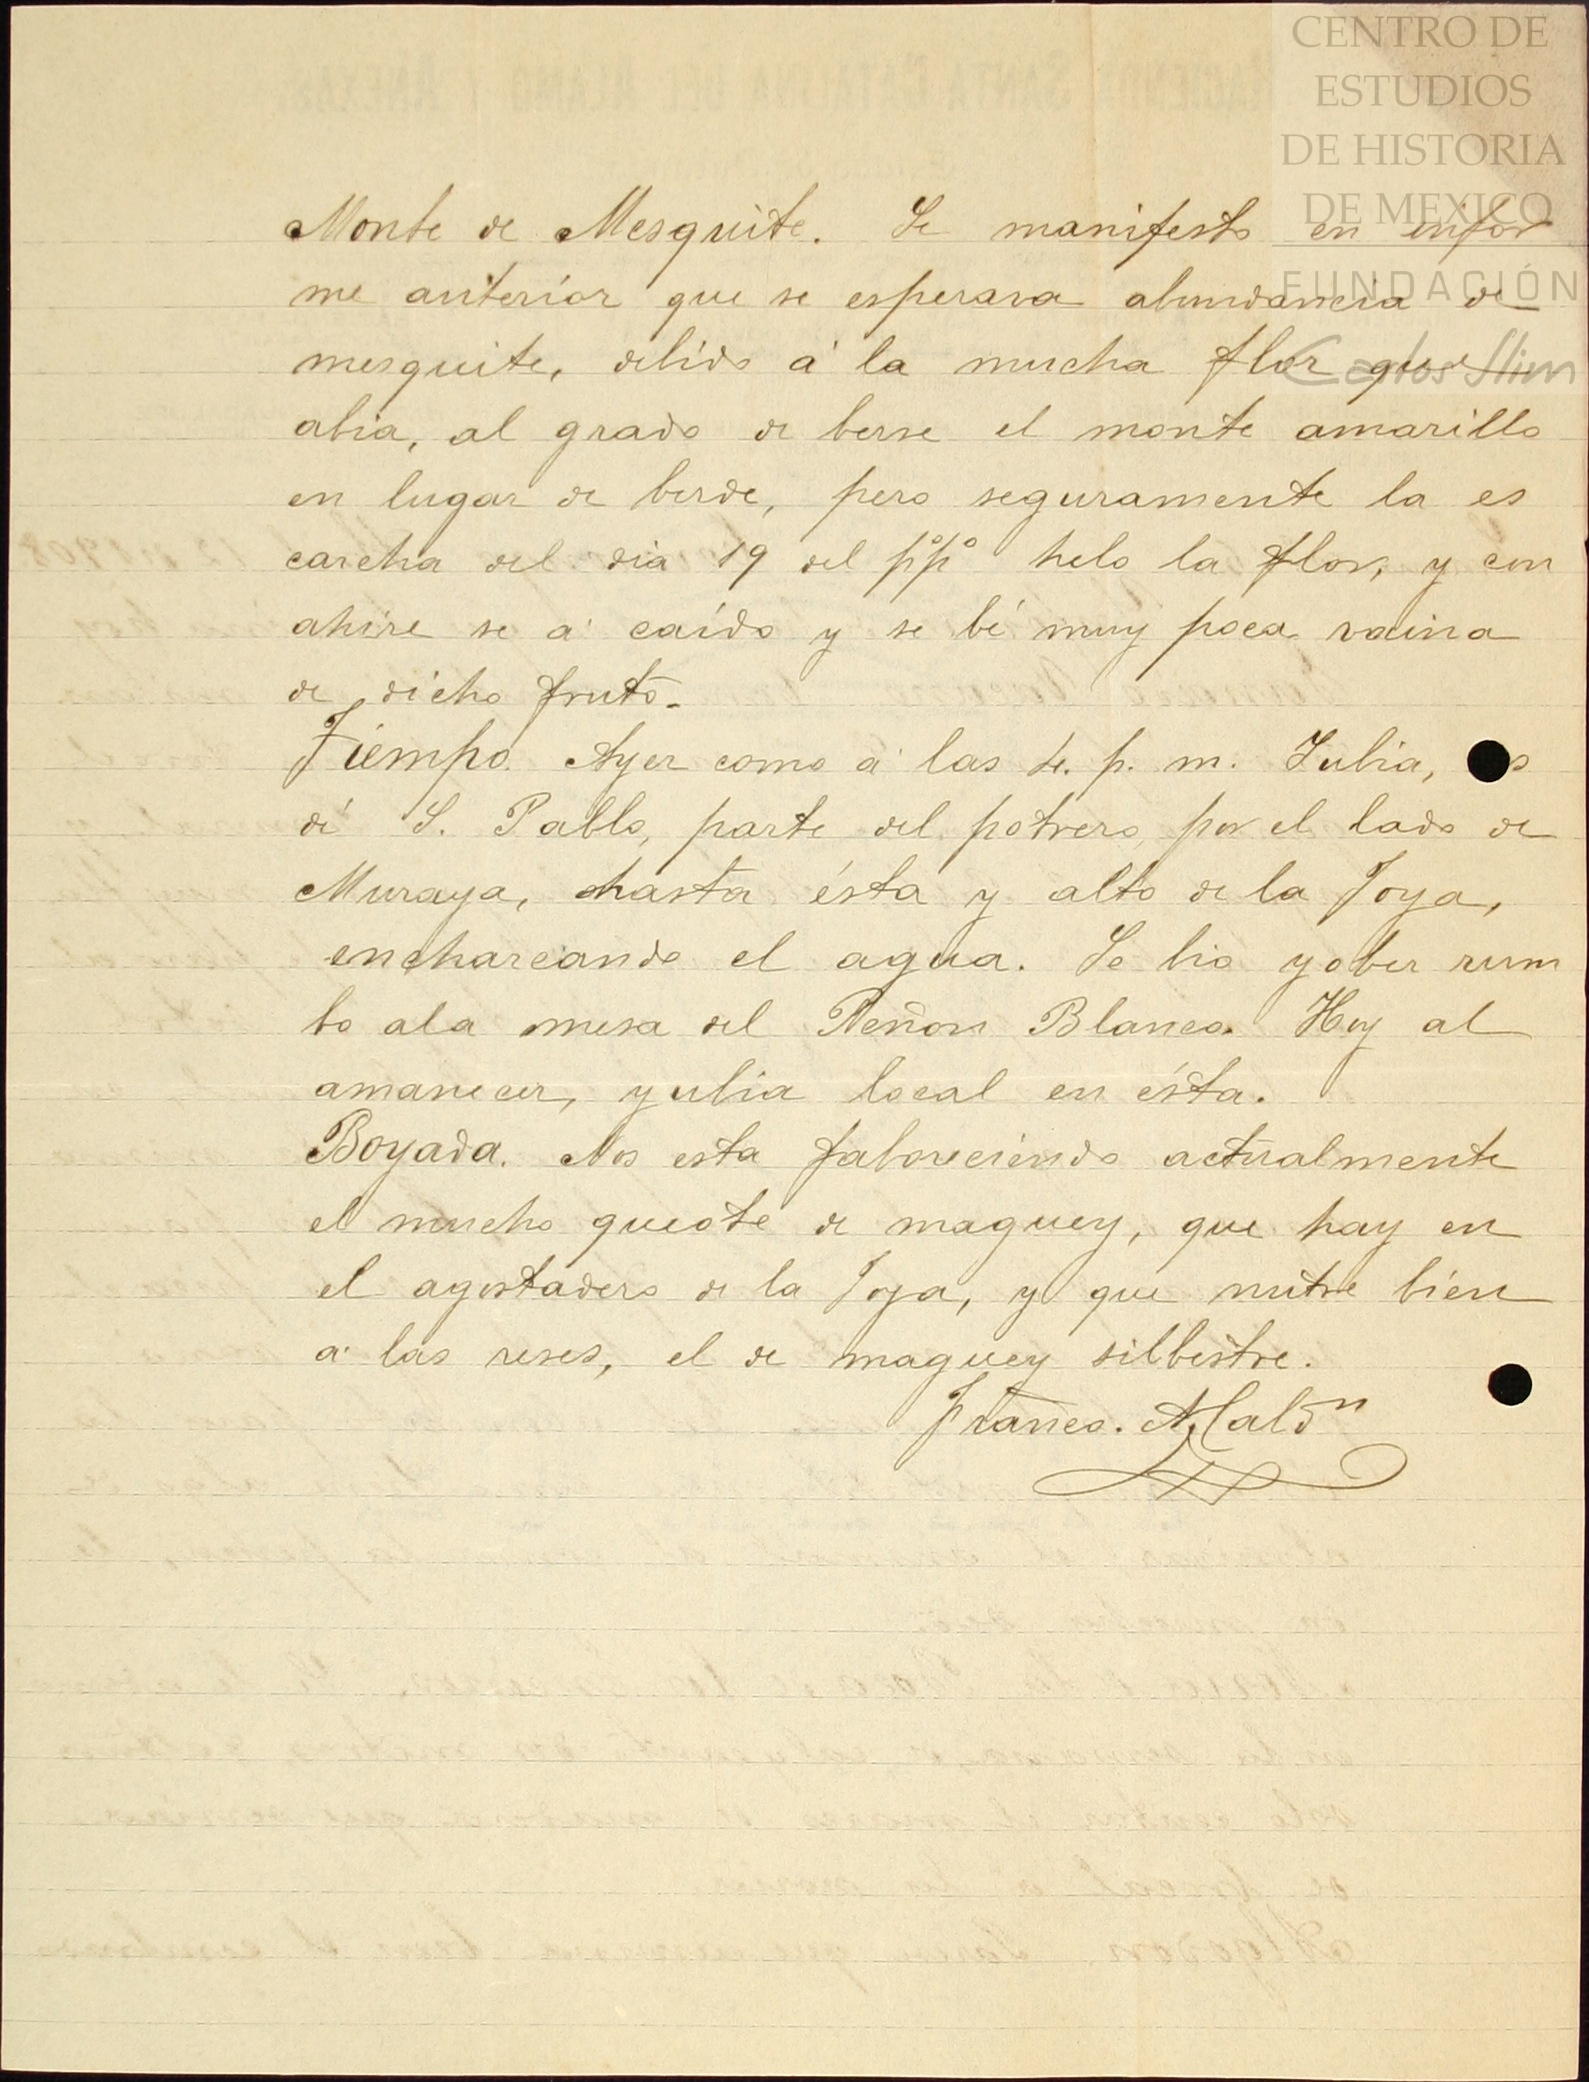 CENTRO DE
ESTUDIOS
DE HISTORIA
DE MEXICO
FUNDACIÓN
Carlos Slim
Monte de Mesquite. Se manifesto en infor
me anterior que se esperava abundancia de
mesquite, debido á la mucha flor que
abia, al grado de berse el monte amarillo
en lugar de berde, pero seguramente la es
carcha del dia 19 del p°p° helo la flor, y con
ahire se a caído y se bé muy poca vaina
de dicho fruto.
Tiempo. Ayer como á las 4. p. m. Yubia,
dé S. Pablo, parte del potrero, por el lado de
Muraya, hasta ésta y alto de la Joya,
encharcando el agua. Se bio yober rum
bo ala mesa del Peñon Blanco. Hoy al
amanecer, yubia local en ésta.
Boyada. Nos esta faboreciendo actualmente
el mucho queote de maguey, que hay en
el agostadero de la Joya, y que nutre bien
a las reses, el de maguey silbestre.
Franco. Maldn